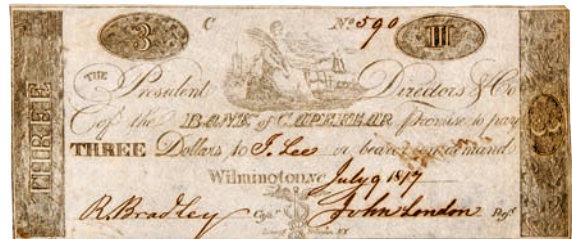 3 C No 590 III
THE President Directors & Co
of the BANK of CAPE FEAR promise to pay
THREE Dollars to J. Lee or bearer on demand
Wilmington NC July 9 1817
R. Bradley Cashr. John London Prest.
THREE
3